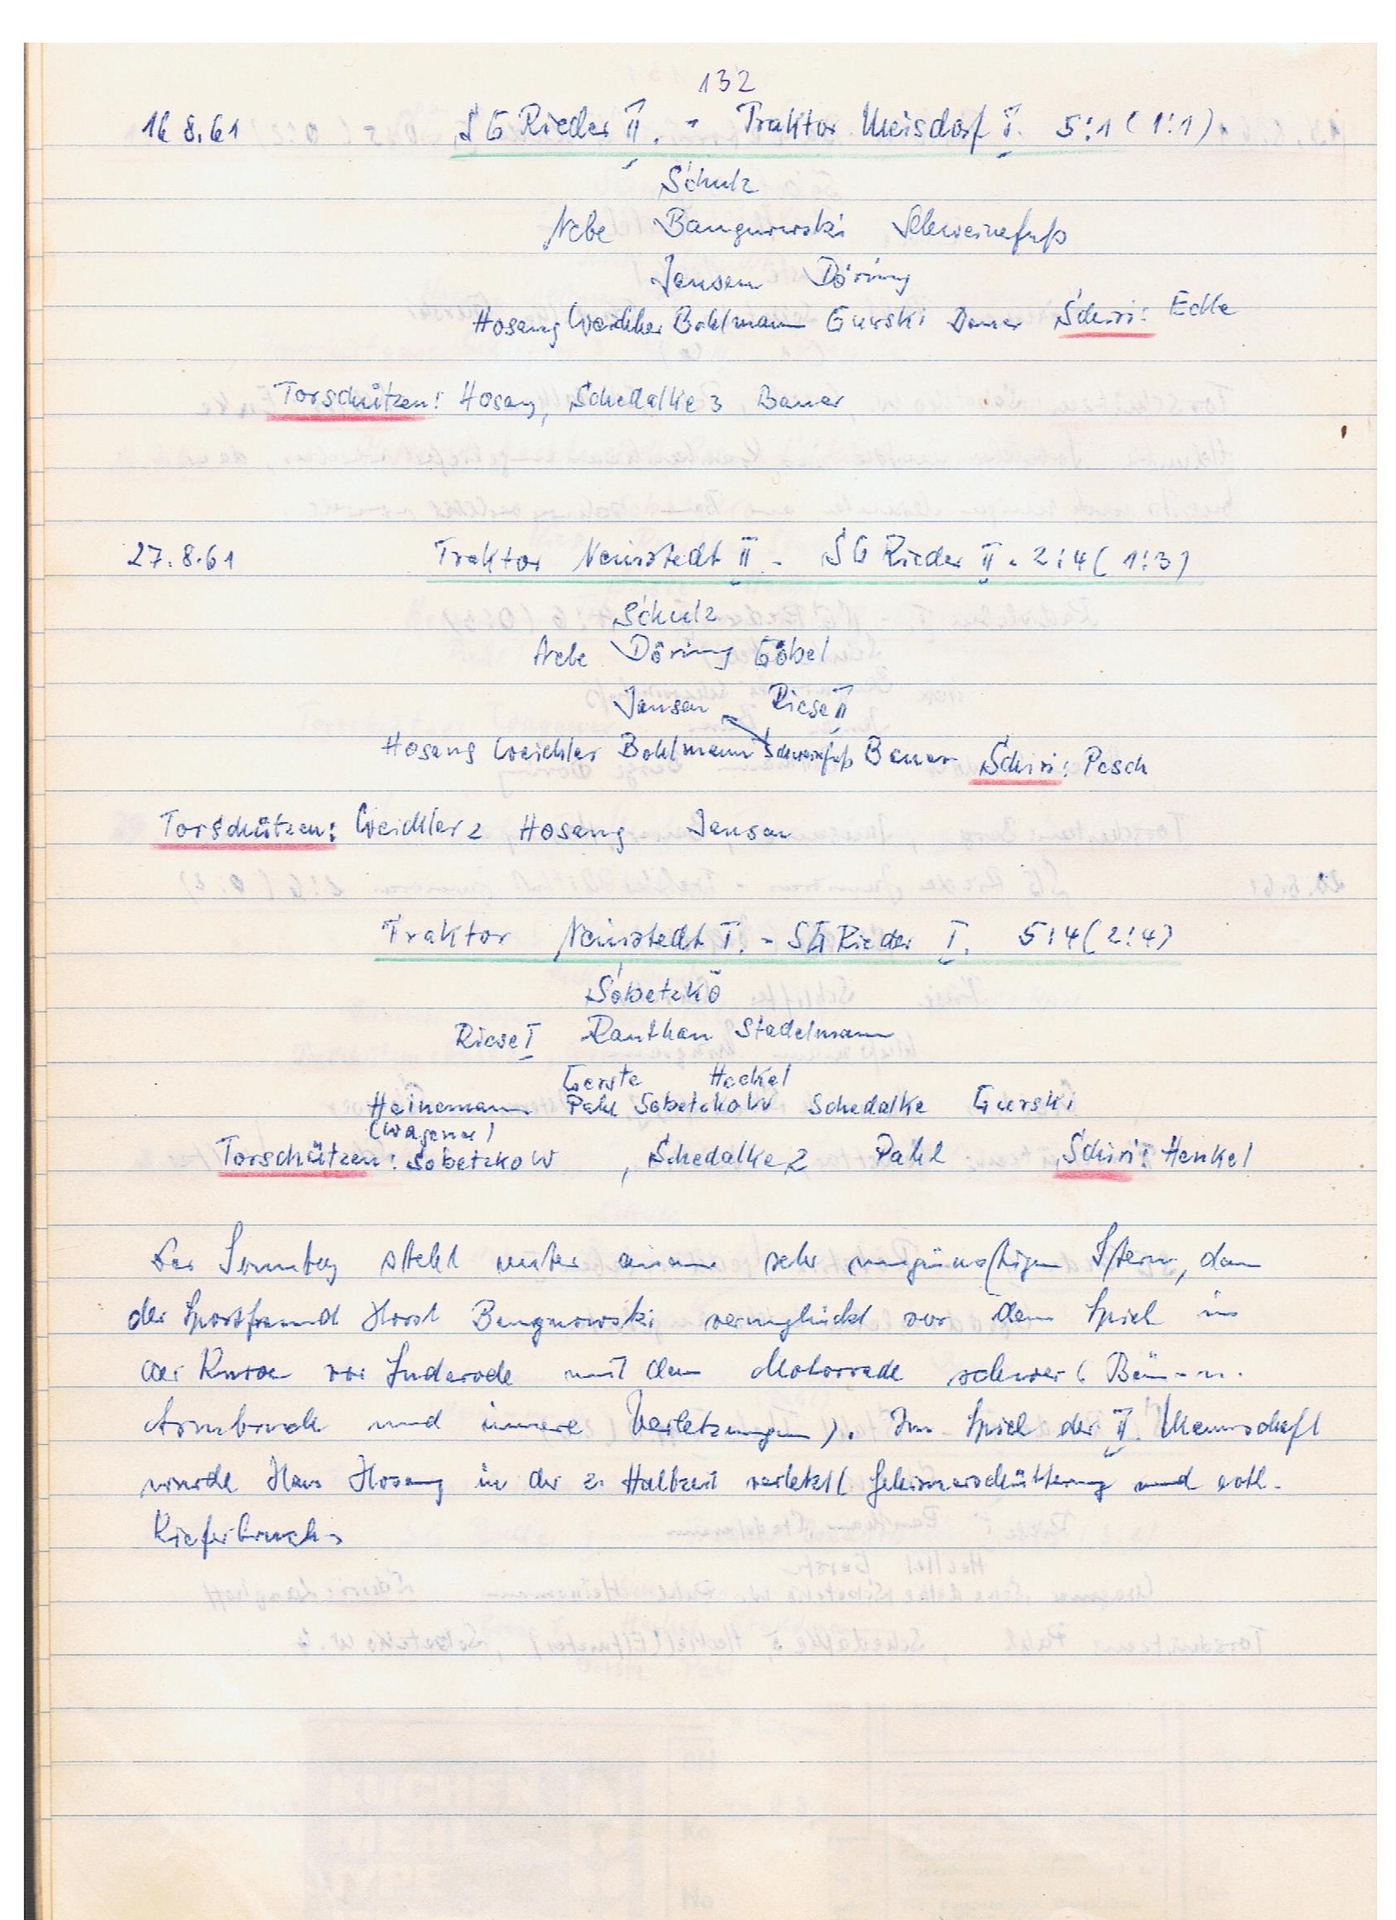 132
16 8.61 SG Rieder II. - Traktor Meisdorf I. 5:1 (1:1)
Schulz
Nebe Bangurowski Schweinefuß
Jansen Döring
Hosang Weichler Bohlmann Gurski Bauer Schiri: Edle
Torschützen: Hosang, Schedalke 3 Bauer
27.8.61 Traktor Neinstedt II - SG Rieder II. 2:4 (1:3)
Schulz
Nebe Döring Göbel
Jansen Riese II
Hosang Weichler Bohlmann Schweinefuß Bauer Schiri: Pesch
Torschützen: Weichler 2 Hosang Jansen
Traktor Neinstedt I. - SG Rieder I. 5:4 (2:4)
Sobetzko
Riese I Ranthan Stadelmann
Gerste Heckel
Heinemann Pahl Sobetzko W Schedalke Gurski
(Wagener)
Torschützen: Sobetzko W, Schedalke 2 Pahl Schiri: Henkel
Der Sonntag steht unter einem sehr ungünstigen Stern, denn
der Sportfreund Horst Bangurowski verunglückt vor dem Spiel in
der Kurve vor Suderode mit dem Motorrade schwer (Bein- u.
Armbruch und innere Verletzungen). Im Spiel der II. Mannschaft
wurde Hans Hosang in der 2. Halbzeit verletzt (Gehirnerschütterung und evtl.
Kieferbruch.